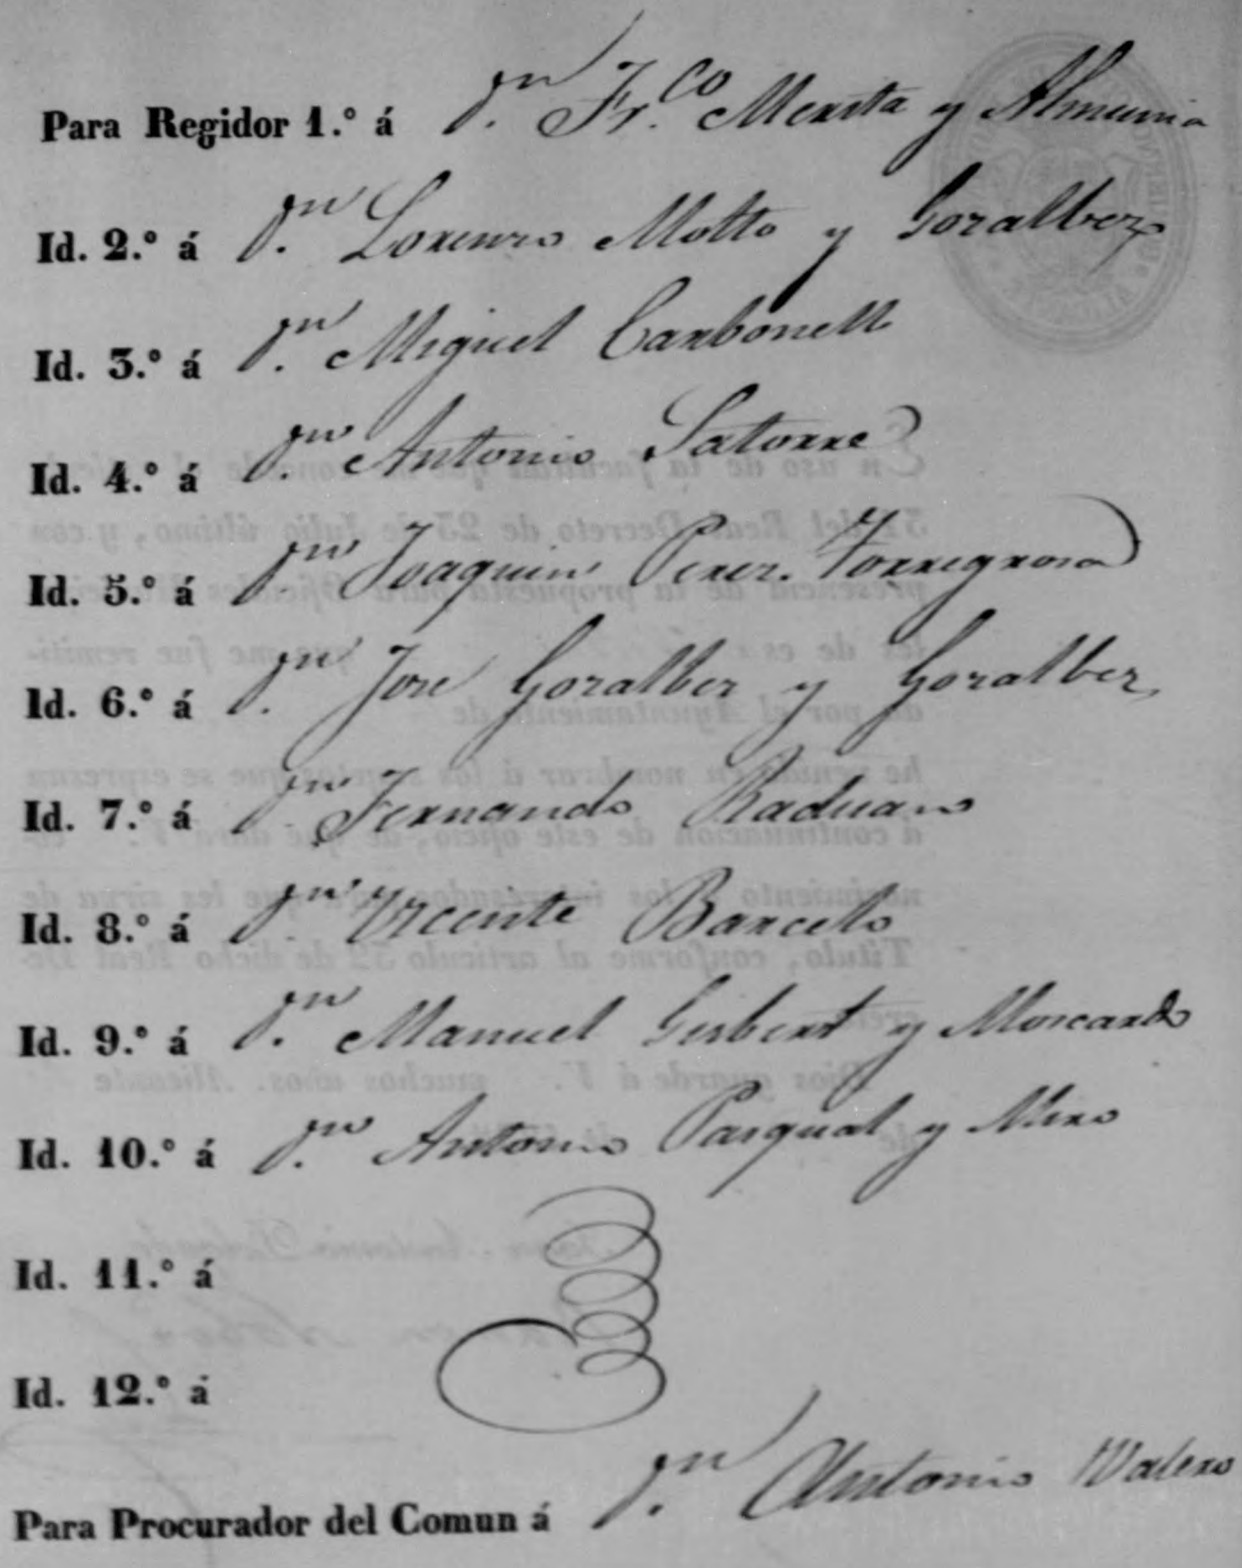 Para Regidor 1.º á Dn. Frco. Merita y Almunia
Id. 2.º á Dn. Lorenzo Molto y Gozalbez
Id. 3.º á Dn. Miguel Carbonell
Id. 4.º á Dn. Antonio Satorre
Id. 5.º á Dn. Joaquin Perez. Torregrosa
Id. 6.º á Dn. José Gozalbez y Gozalbez
Id. 7.º á Dn. Fernando Raduan
Id. 8.º á Dn. Vicente Barcelo
Id. 9.º á Dn. Manuel Gisbert y Moscardo
Id. 10.º á Dn. Antonio Pasqual y Miro
Id. 11.º á
Id. 12.º á
Para Procurador del Comun á Dn. Antonio Valero